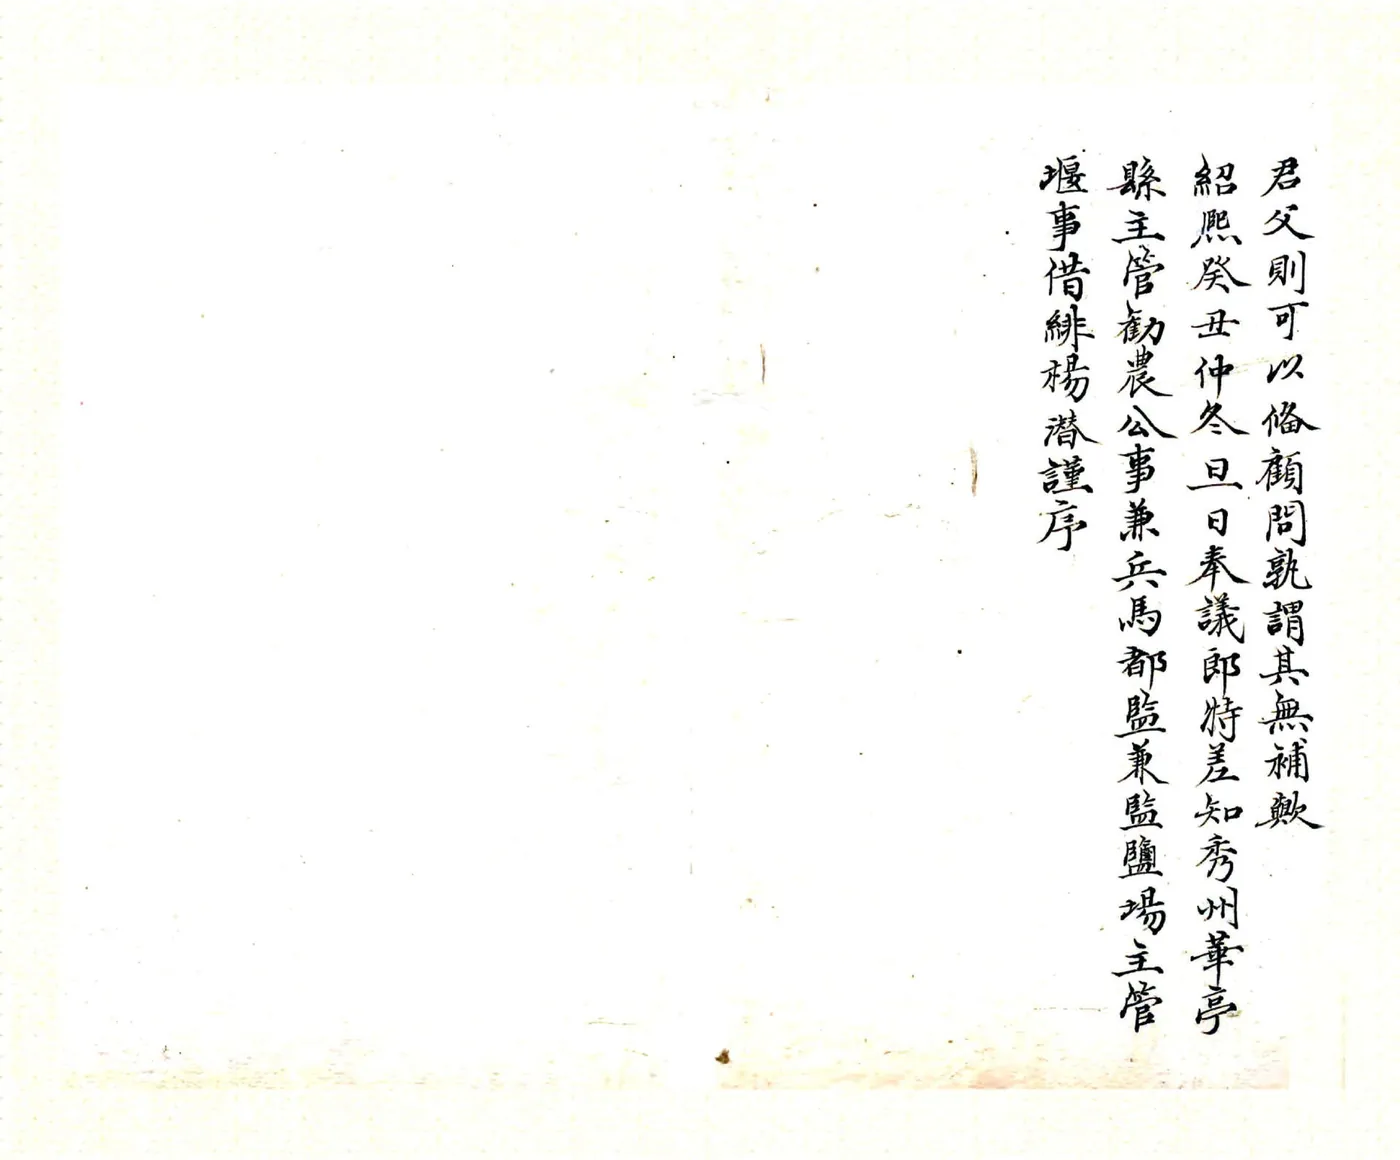 君父則可以俻顧問孰謂其無補歟
紹熈癸丑仲冬旦日奉議郎特差知秀州華亭
縣主管勸農公事兼兵馬都監兼監鹽場主管
堰事借緋楊潛謹序